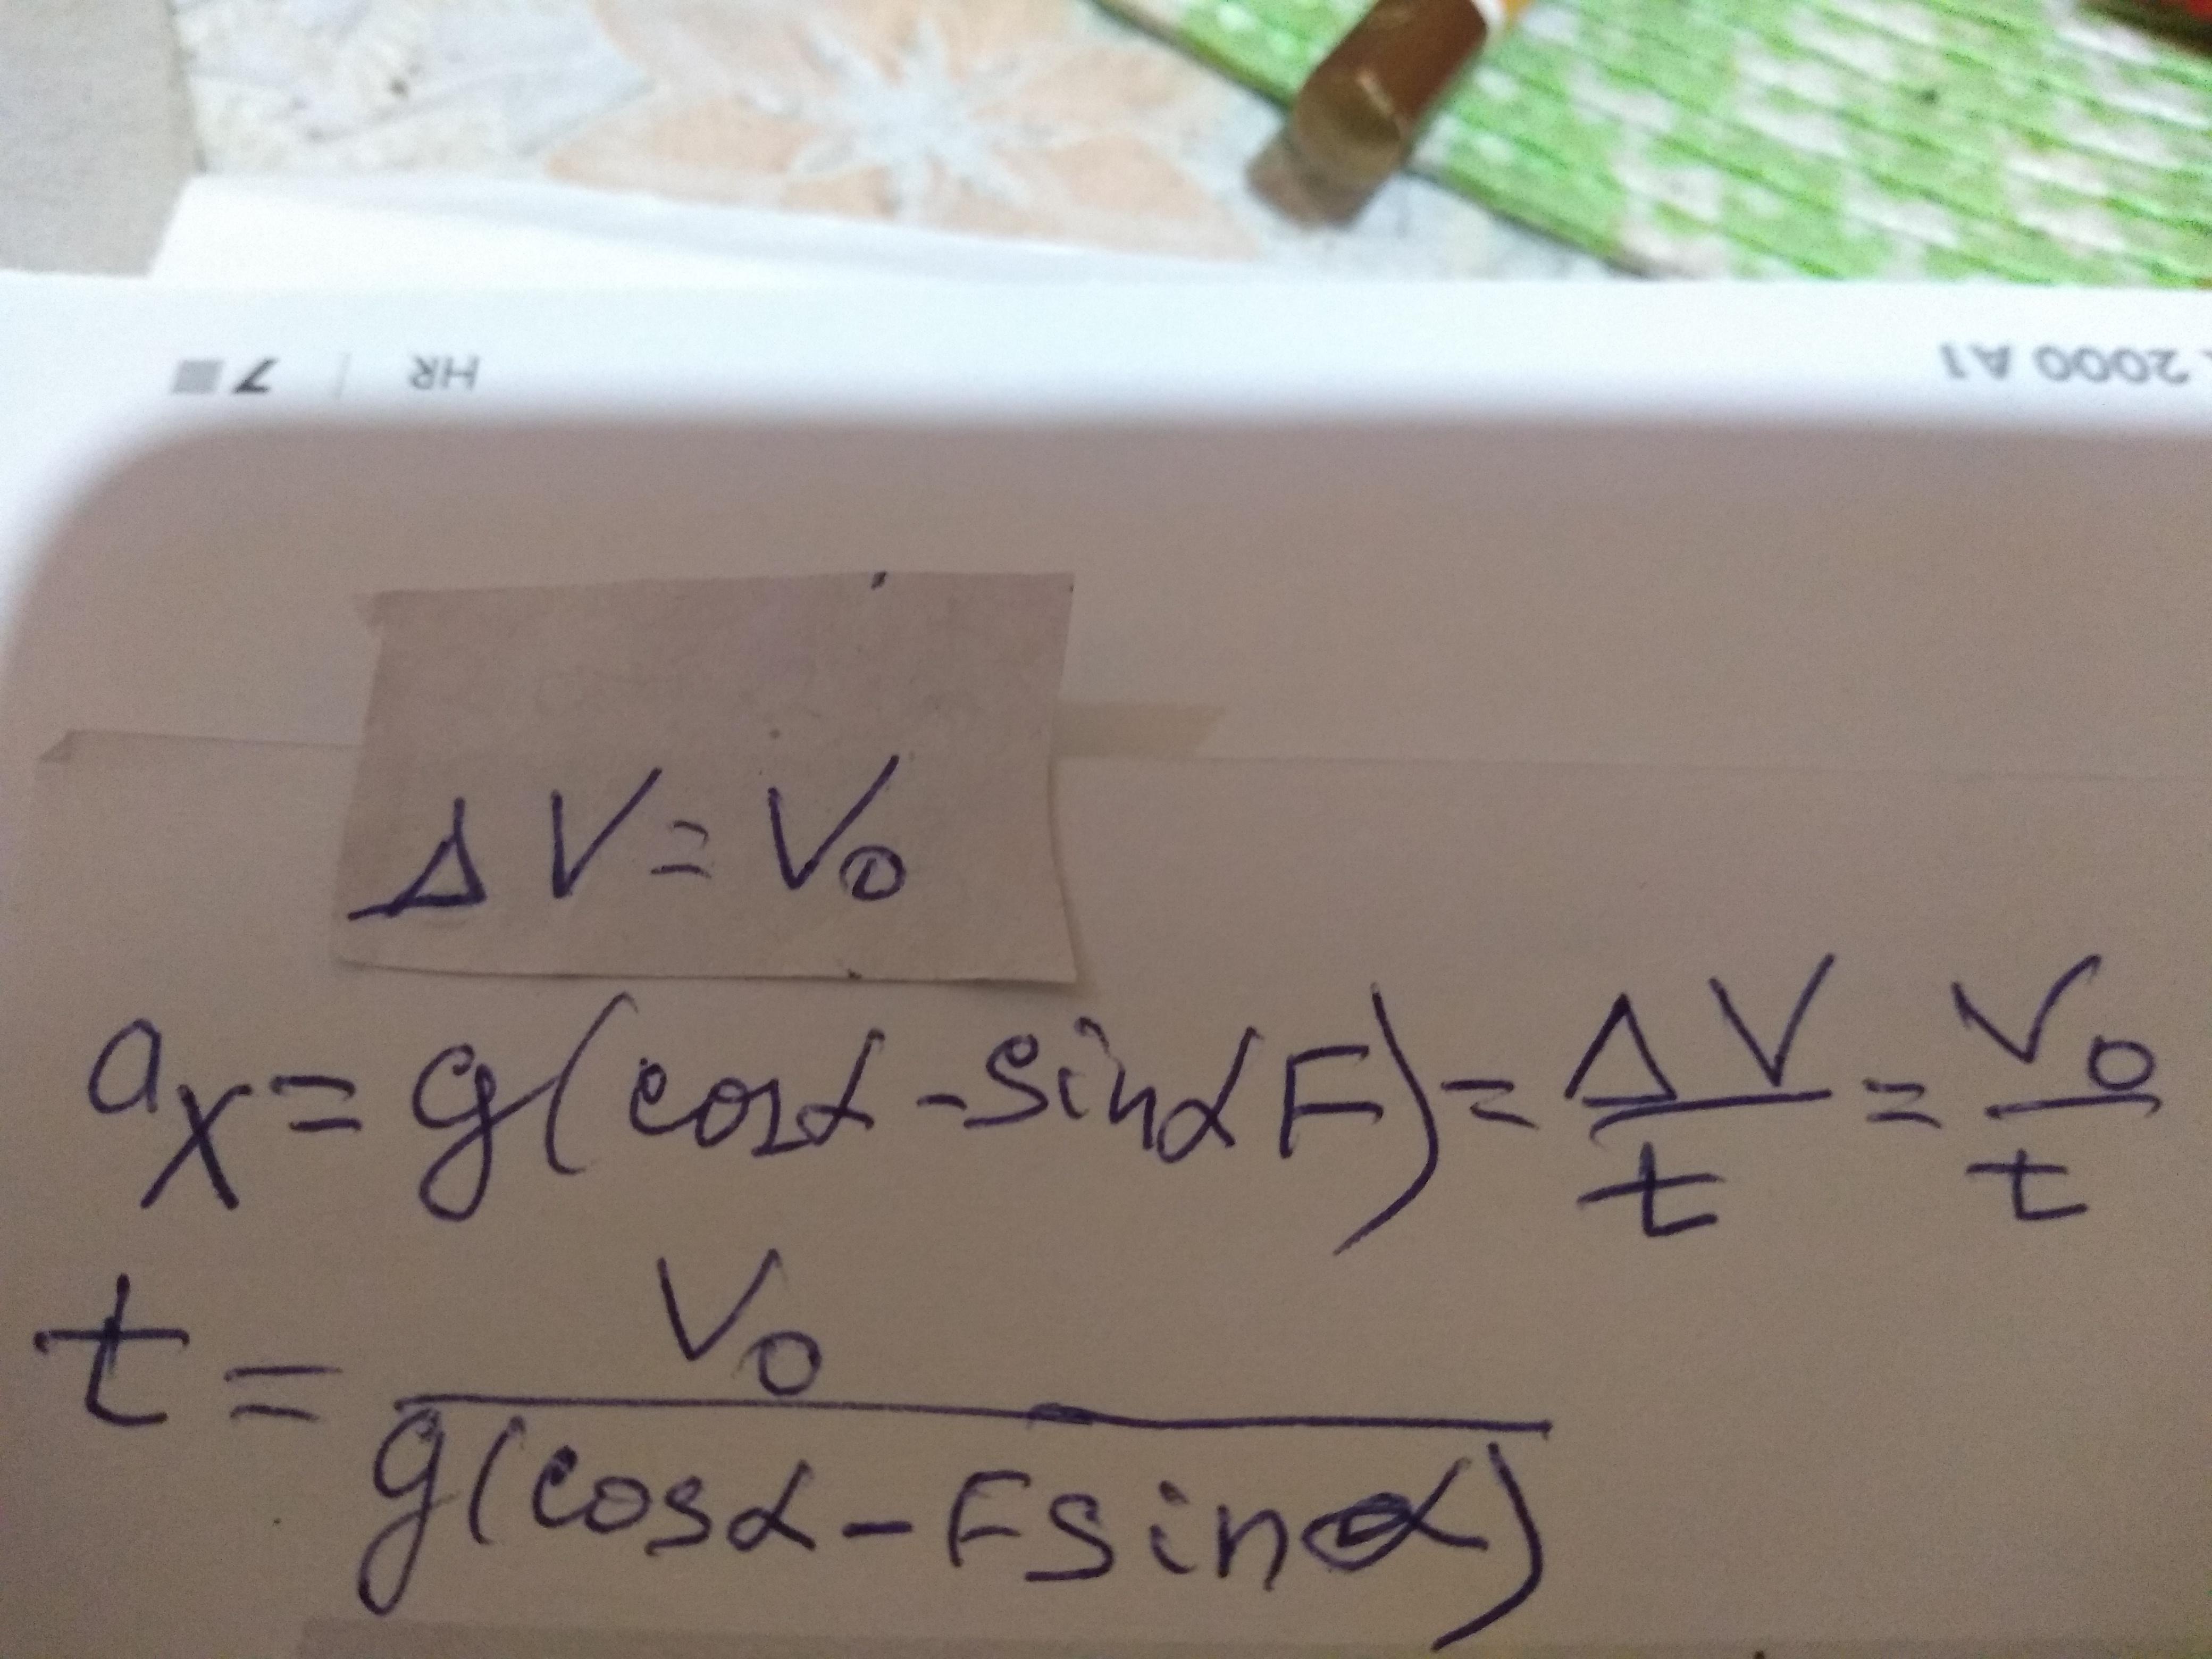 2000 A1
HR | 7
ΔV = V₀
aₓ = g(cosα - sinα F) = ΔV/t = V₀/t
t = V₀/g(cosα - Fsinα)